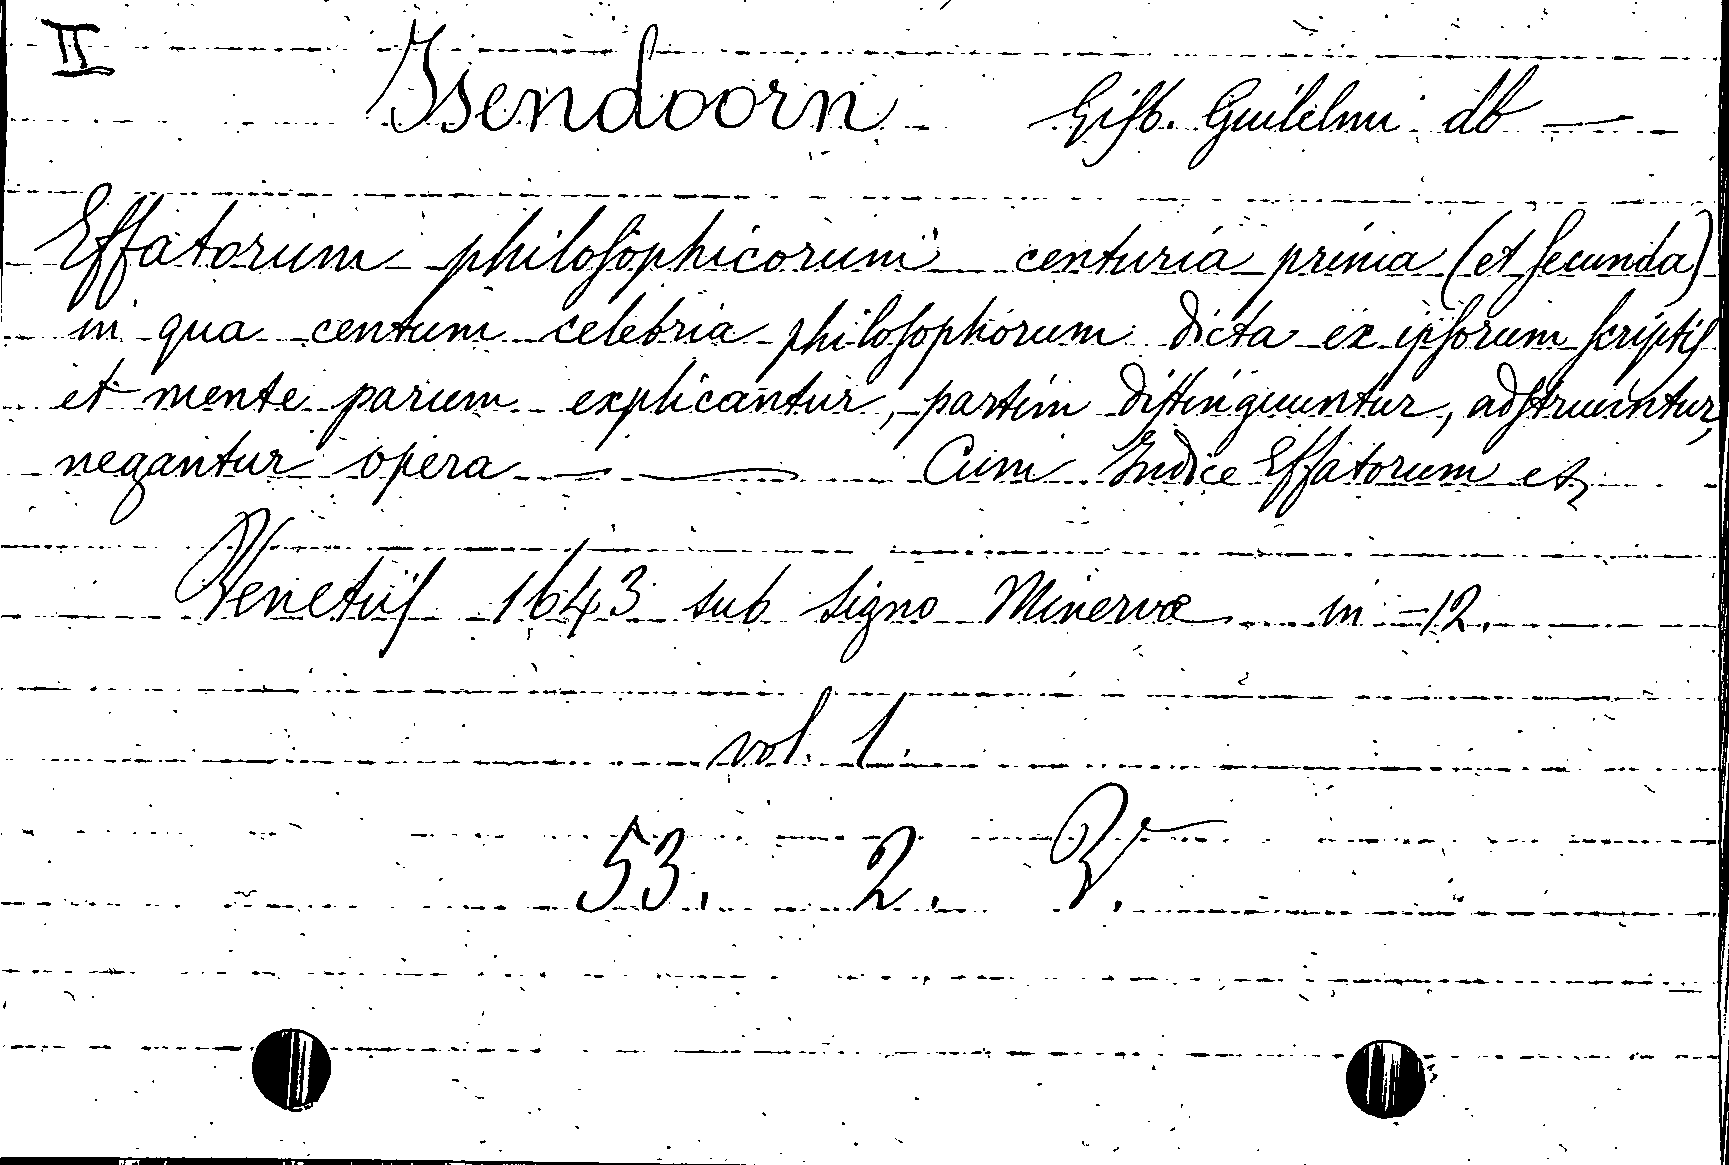 II
Isendoorn Gisb. Guilelmi ab —
Effatorum philosophicorum centuria prima (et secunda)
in qua centum celebria philosophorum dicta ex ipsorum scriptis
et mente parum explicantur, partim distinguuntur, adstruuntur,
negantur opera — — Cum Indice Effatorum etz
Venetiis 1643 sub signo Minervæ in -12.
vol. 1.
53. 2. V.